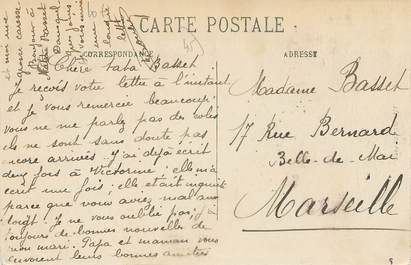 CARTE POSTALE
CORRESPONDANCE
ADRESSE
Chère tata Basset
Je reçois votre lettre à l'instant
et je vous remercie beaucoup;
vous ne me parlez pas de colis
ils ne sont sans doute pas
encore arrivés. J'ai déjà écrit
deux fois à Victorine; elle m'a
écrit une fois; elle était inquiète
parce que vous avez mal au
doigt. Je ne vous oublie pas; j'ai
toujours de bonnes nouvelles de
mon mari. Papa et maman vous
envoient leurs bonnes amitiés
Madame Basset
17 Rue Bernard
Belle-de-Mai
Marseille